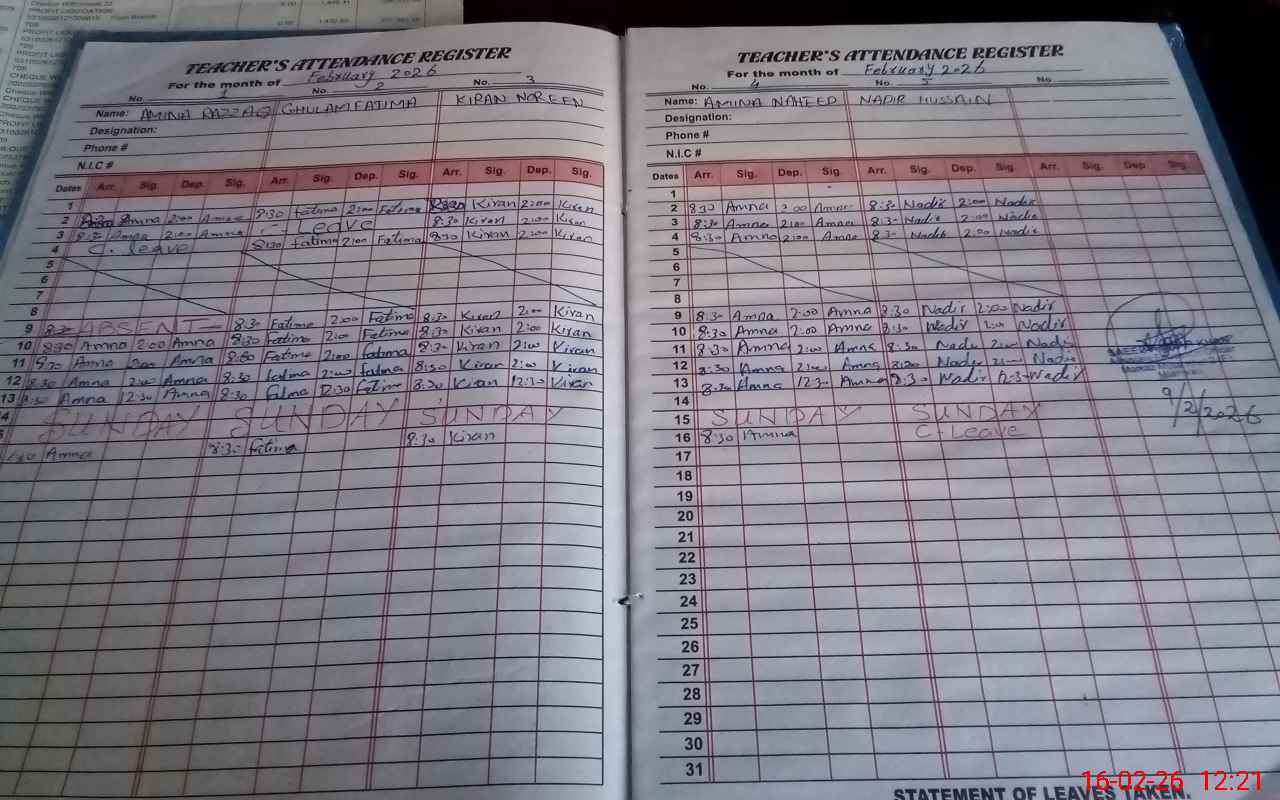 TEACHER'S ATTENDANCE REGISTER
For the month of February 2026
No. 1 No. 2 No. 3
Name: AMINA RAZZAQ GHULAM FATIMA KIRAN NOREEN
Designation:
Phone #
N.I.C #
Dates Arr. Sig. Dep. Sig. Arr. Sig. Dep. Sig. Arr. Sig. Dep. Sig.
1
2 Amna 2:00 Amna 8:30 Fatima 2:00 Fatima Kiran 2:00 Kiran
3 8:30 Amna 2:00 Amna C. Leave 8:30 Kiran 2:00 Kiran
4 C. leave 8:30 Fatima 2:00 Fatima 8:30 Kiran 2:00 Kiran
5
6
7
8
9 8:30 ABSENT 8:30 Fatima 2:00 Fatima 8:30 Kiran 2:00 Kiran
10 8:30 Amna 2:00 Amna 8:30 Fatima 2:00 Fatima 8:30 Kiran 2:00 Kiran
11 8:30 Amna 2:00 Amna 8:30 Fatima 2:00 fatima 8:30 Kiran 2:00 Kiran
12 8:30 Amna 2:00 Amna 8:30 fatima 2:00 fatima 8:30 Kiran 2:00 Kiran
13 8:30 Amna 12:30 Amna 8:30 Fatima 12:30 Fatima 8:30 Kiran 12:30 Kiran
SUNDAY SUNDAY SUNDAY
Amna 8:30 Fatima 8:30 Kiran
TEACHER'S ATTENDANCE REGISTER
For the month of February 2026
No. 4 No. 5 No.
Name: AMINA NAHEED NADIR HUSSAIN
Designation:
Phone #
N.I.C #
Dates Arr. Sig. Dep. Sig. Arr. Sig. Dep. Sig. Arr. Sig. Dep. Sig.
1
2 8:30 Amna 2:00 Amna 8:30 Nadir 2:00 Nadir
3 8:30 Amna 2:00 Amna 8:30 Nadir 2:00 Nadir
4 8:30 Amna 2:00 Amna 8:30 Nadir 2:00 Nadir
5
6
7
8
9 8:30 Amna 2:00 Amna 8:30 Nadir 2:00 Nadir
10 8:30 Amna 2:00 Amna 8:30 Nadir 2:00 Nadir
11 8:30 Amna 2:00 Amna 8:30 Nadir 2:00 Nadir
12 8:30 Amna 2:00 Amna 8:30 Nadir 2:00 Nadir
13 8:30 Amna 12:30 Amna 8:30 Nadir 12:30 Nadir
14
9/2/2026
15 SUNDAY SUNDAY
16 8:30 Amna C. Leave
17
18
19
20
21
22
23
24
25
26
27
28
29
30
31
STATEMENT OF LEAVES TAKEN.
16-02-26 12:21